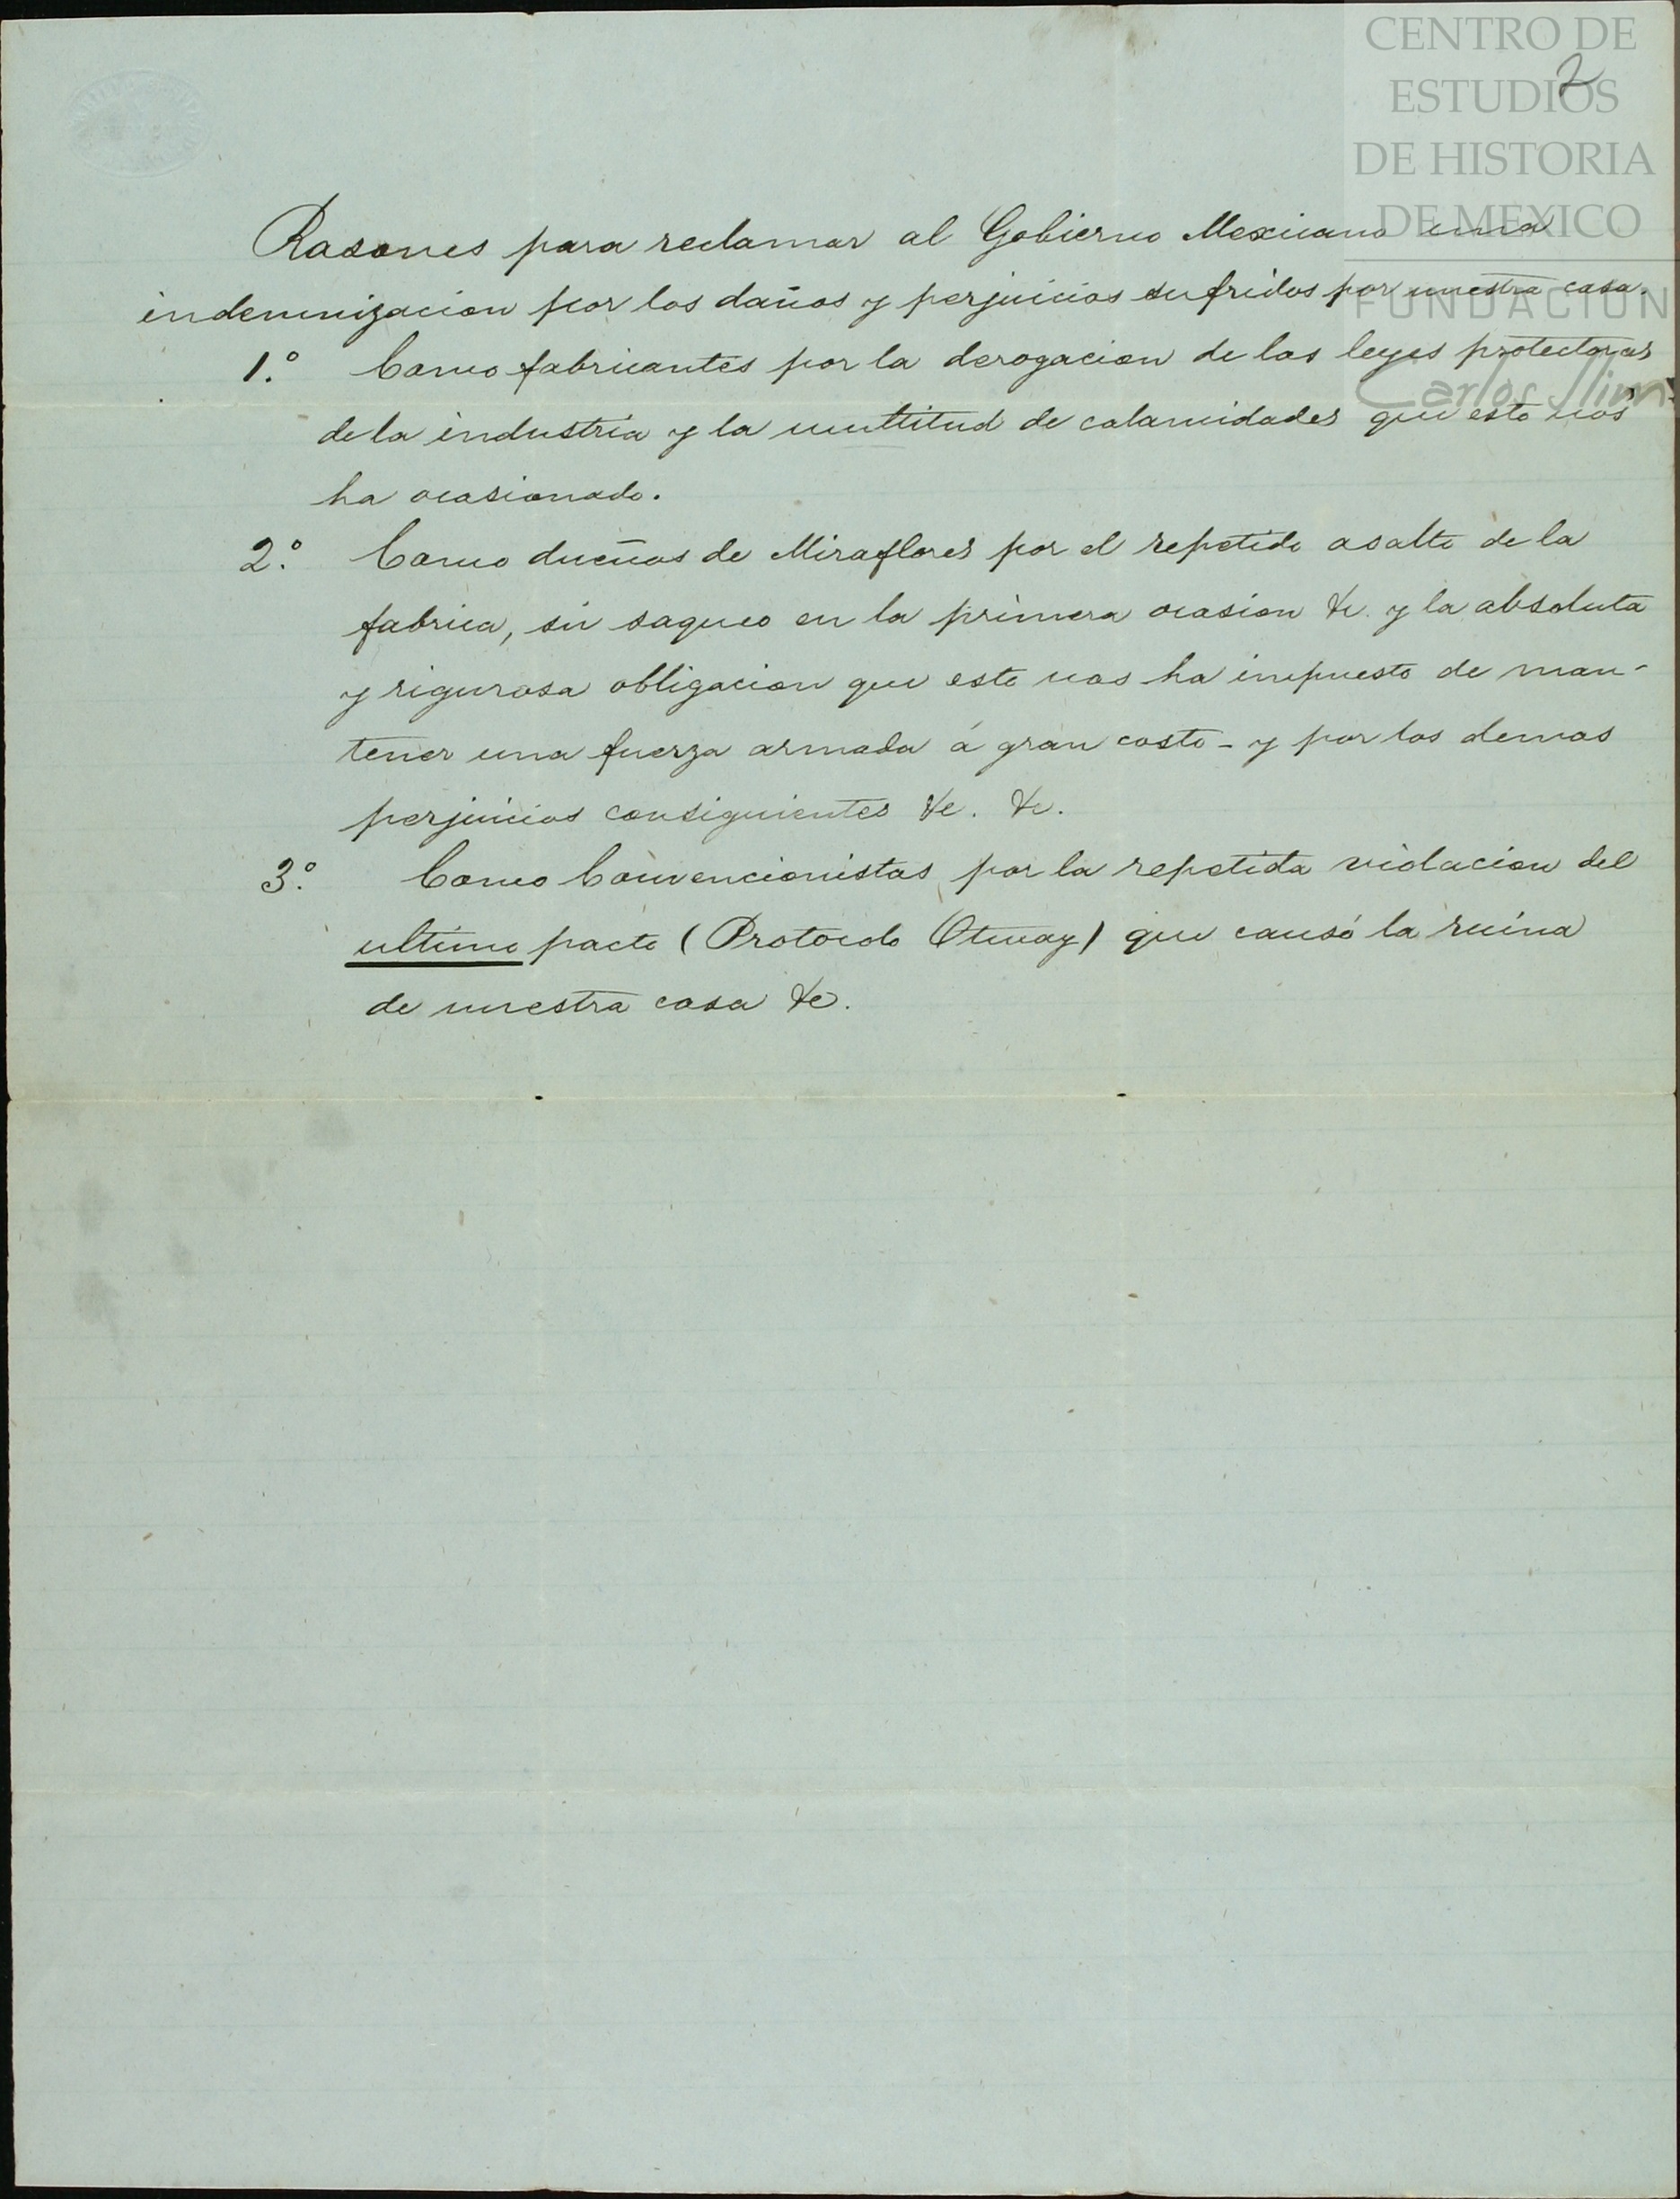 CENTRO DE
ESTUDIOS
DE HISTORIA
DE MEXICO
FUNDACION
Carlos Slim
2
Rasones para reclamar al Gobierno Mexicano una
indemnizacion por los daños y perjuicios sufridos por nuestra casa.
1.º Como fabricantes por la derogacion de las leyes protectoras
de la industria y la multitud de calamidades que esto nos
ha ocasionado.
2.º Como dueños de Miraflores por el repetido asalto de la
fabrica, su saqueo en la primera ocasion &c. y la absoluta
y rigurosa obligacion que esto nos ha impuesto de man-
tener una fuerza armada á gran costo - y por los demas
perjuicios consiguientes &c. &c.
3.º Como Convencionistas por la repetida violacion del
ultimo pacto (Protocolo Otway) que causó la ruina
de nuestra casa &c.